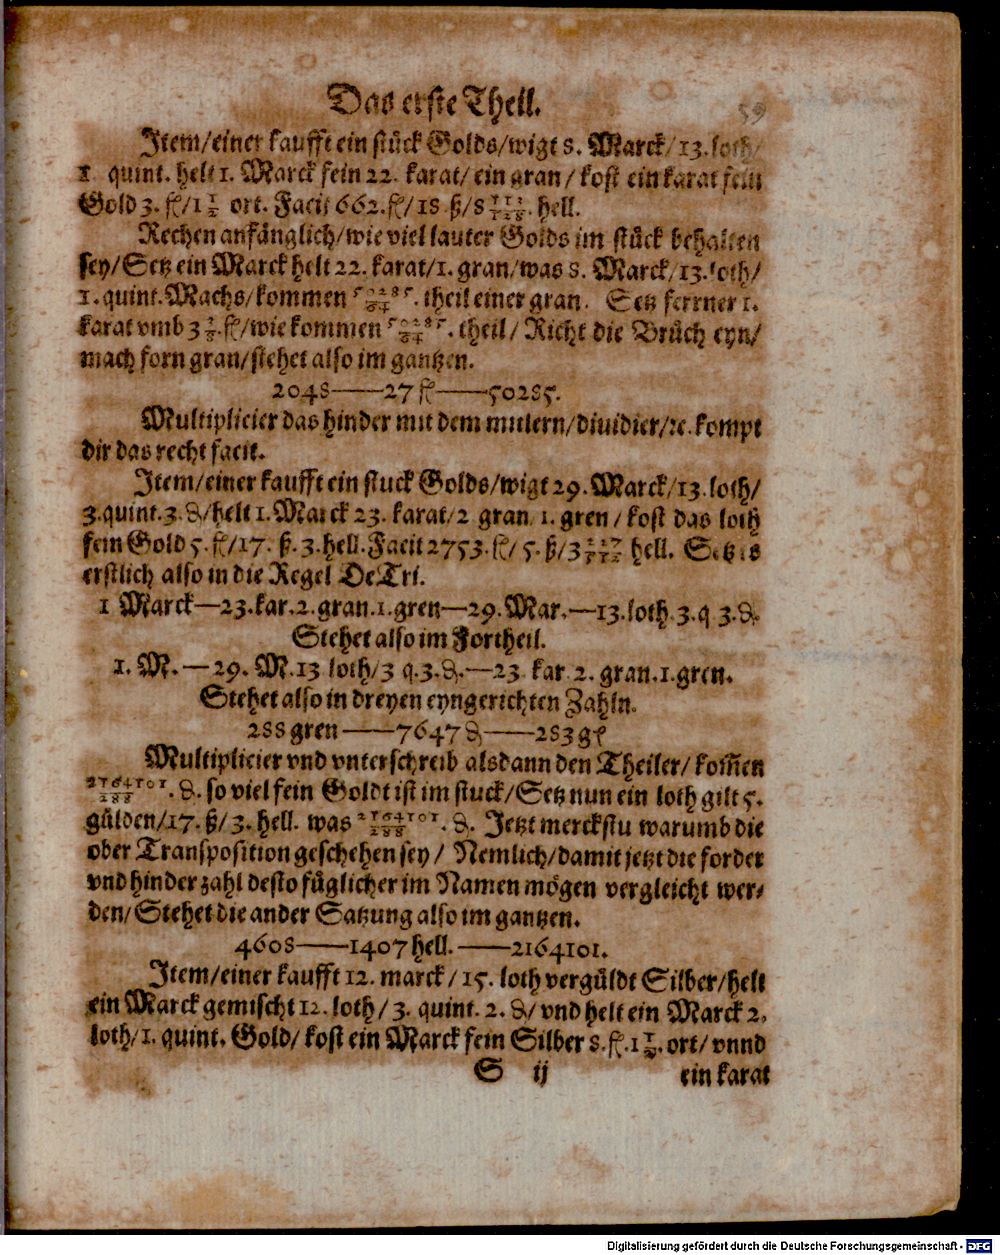 Das erste Theil.
59
Item/einer kaufft ein stück Golds/wigt 8. Marck/13.loth/
1 quint. helt 1. Marck fein 22. karat/ ein gran/ kost ein karat fein
Gold 3. fl/1 1/2 ort. Facit 662.fl/18 ß/8 113/128. hell.
Rechen anfänglich/wie viel lauter Golds im stück behalten
sey/Setz ein Marck helt 22. karat/1. gran/was 8. Marck/13.loth/
1. quint. Machs/kommen 50285/64. theil einer gran. Setz ferrner 1.
karat vmb 3 3/8.fl/wie kommen 50285/64. theil/ Richt die Brüch eyn/
mach forn gran/stehet also im gantzen.
2048——27 fl——50285.
Multiplicier das hinder mit dem mitlern/diuidier/ꝛc. kompt
dir das recht facit.
Item/einer kaufft ein stuck Golds/wigt 29. Marck/13. loth/
3.quint.3.₰/helt 1. Marck 23. karat/2 gran 1. gren/ kost das loth
fein Gold 5.fl/17. ß.3.hell.Facit 2753.fl/5.ß/3 227/512 hell. Setz es
erstlich also in die Regel DeTri.
1 Marck—23.kar.2.gran.1.gren—29.Mar.—13.loth.3.q 3.₰.
Stehet also im Fortheil.
1. M.—29. M.13 loth/3 q.3.₰.—23 kar 2. gran.1.gren.
Stehet also in dreyen eyngerichten Zahln.
288 gren——7647 ₰——283 gr
Multiplicier vnd vnterschreib alsdann den Theiler/ kom̃en
2164101/288. ₰. so viel fein Goldt ist im stuck/Setz nun ein loth gilt 5.
gülden/17. ß/3. hell. was 2164101/288. ₰. Jetzt merckstu warumb die
ober Transposition geschehen sey/ Nemlich/damit jetzt die forder
vnd hinder zahl desto füglicher im Namen mögen vergleicht wer-
den/Stehet die ander Satzung also im gantzen.
4608——1407 hell.——2164101.
Item/einer kaufft 12. marck/15. loth vergüldt Silber/helt
ein Marck gemischt 12. loth/3. quint. 2. ₰/ vnd helt ein Marck 2.
loth/1. quint. Gold/ kost ein Marck fein Silber 8.fl.1 1/2. ort/ vnnd
S ij ein karat
Digitalisierung gefördert durch die Deutsche Forschungsgemeinschaft - DFG